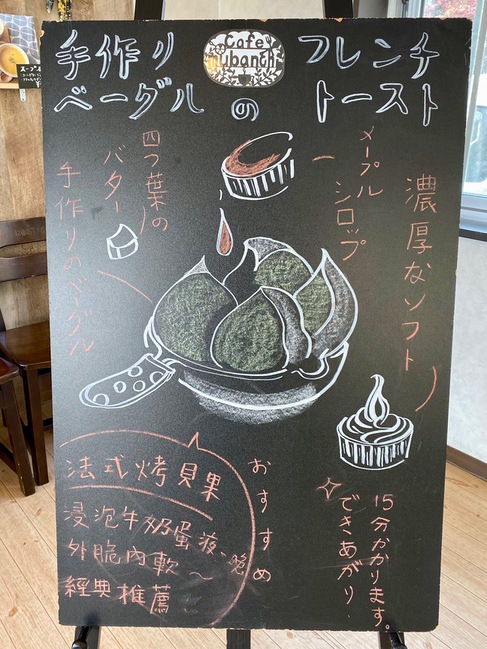 手作り フレンチ
ベーグルの トースト
Cafe
ubanchi
メープル
シロップ
四つ葉の
バター
手作りのベーグル
濃厚なソフト
おすすめ
法式烤貝果
浸泡牛奶蛋液、
外脆內軟~
經典推薦
15分かかります。
できあがり